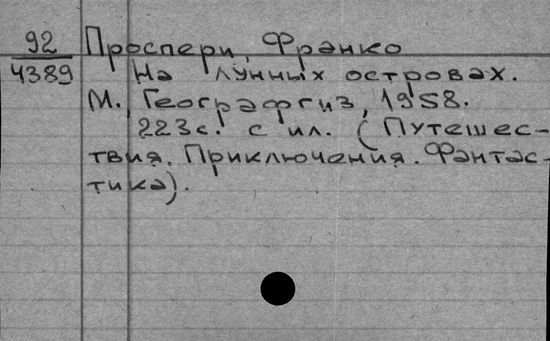 92 Проспери, Франко
4389 На лунных островах.
М., Географгиз, 1958.
223с. с ил. (Путешес-
твия. Приключения. Фантас-
тика).